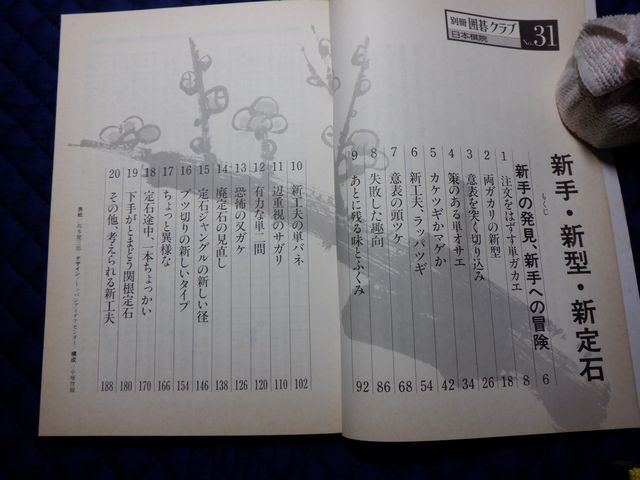 別冊囲碁クラブ
No.31
日本棋院
新手・新型・新定石
もくじ
新手の発見、新手への冒険 6
1 注文をはずす単ガカエ 8
2 両ガカリの新型 18
3 意表を突く切り込み 26
4 策のある単オサエ 34
5 カケツギかマゲか 42
6 新工夫、ラッパツギ 54
7 意表の頭ツケ 68
8 失敗した趣向 86
9 あとに残る味とふくみ 92
10 新工夫の単バネ 102
11 辺重視のサガリ 110
12 有力な単二間 120
13 恐怖の又ガケ 126
14 廃定石の見直し 138
15 定石ジャングルの新しい径 146
16 ブツ切りの新しいタイプ 154
17 ちょっと異様な 166
18 定石途中、一本ちょっかい 170
19 下手がとまどう関根定石 180
20 その他、考えられる新工夫 188